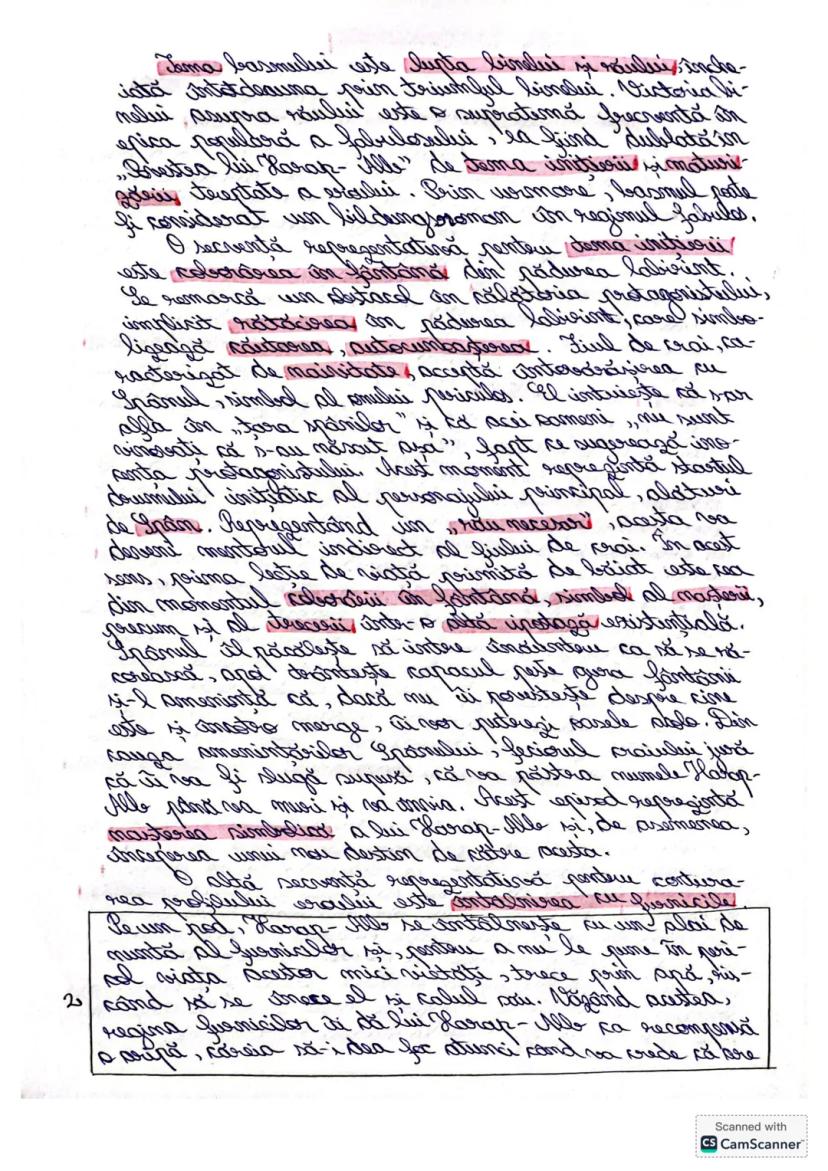 Tema basmului este lupta binelui și răului, înche-
iată întotdeauna prin triumful binelui. Victoria bi-
nelui asupra răului este o supratemă frecventă în
epica populară a fabulosului, ea fiind dublată în
„Povestea lui Harap-Alb" de tema inițierii și maturi-
zării treptate a eroului. Prin urmare, basmul poate
fi considerat un bildungsroman în regimul fabulos.
O secvență reprezentativă pentru tema inițierii
este coborârea în fântână din pădurea labirint.
Se remarcă un obstacol în călătoria protagonistului,
implicit rătăcirea în pădurea labirint, care simbo-
lizează căutarea, autocunoașterea. Fiul de crai, ca-
racterizat de naivitate, acceptă întovărășirea cu
Spânul, simbol al omului periculos. El intuiește că s-ar
afla în „țara spânilor" și că acei oameni „nu sunt
vinovați că s-au născut așa", fapt ce sugerează ino-
cența protagonistului. Acest moment reprezintă startul
drumului inițiatic al personajului principal, alături
de Spân. Reprezentând un „rău necesar", acesta va
deveni mentorul indirect al fiului de crai. În acest
sens, prima lecție de viață primită de băiat este cea
din momentul coborârii în fântână, simbol al nașterii,
precum și al trecerii într-o altă ipotază existențială.
Spânul îl păcălește să intre înăuntru ca să se ră-
corească, apoi trântește capacul peste gura fântânii
și-l amenință că, dacă nu îi povestește despre cine
este și încotro merge, îi vor putrezi oasele acolo. Din
cauza amenințărilor Spânului, feciorul craiului jură
că îi va fi slugă supusă, că va păstra numele Harap-
Alb până va muri și va învia. Acest episod reprezintă
nașterea simbolică a lui Harap-Alb și, de asemenea,
începerea unui nou destin de către acesta.
O altă secvență reprezentativă pentru contura-
rea profilului eroului este întâlnirea cu furnicile.
Pe un pod, Harap-Alb se întâlnește cu un alai de
nuntă al furnicilor și, pentru a nu le pune în peri-
col viața acestor mici vietăți, trece prin apă, ris-
când să se înece el și calul său. Văzând acestea,
regina furnicilor îi dă lui Harap-Alb ca recompensă
o aripă, căreia să-i dea foc atunci când va crede că are
2
Scanned with
CS CamScanner